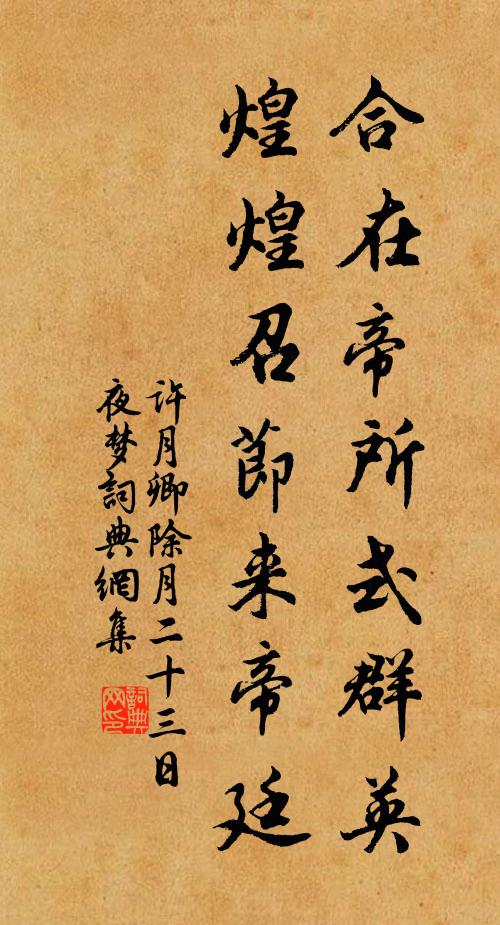 合在帝所式群英
煌煌召節来帝廷
许月卿除月二十三日
夜梦詞典網集
詞典
网印